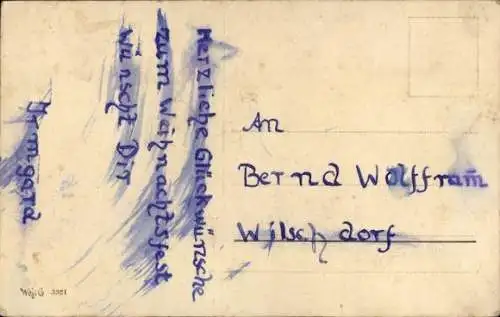 Herzliche Glückwürzsche
zum Waihnachtsfest
wünscht Dir
Irmgard
An
Bernd Wolffram
Wilsch dorf